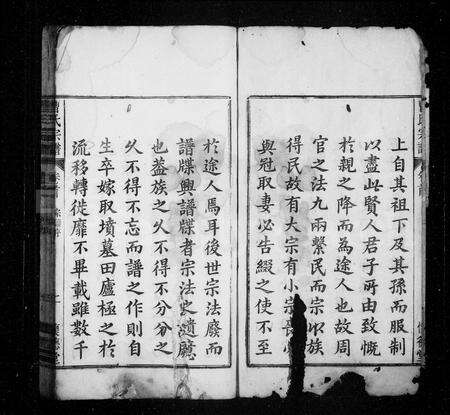 上自其祖下及其孫而服制
以盡此賢人君子所由致慨
於親之降而為途人也故周
官之法九兩繫民而宗以族
得民故有大宗有小宗
與冠取妻必告綴之使不至
於途人焉耳後世宗法廢而
譜牒興譜牒者宗法之遺
也蓋族之久不得不分分之
久不得不忘而譜之作則自
生卒嫁取墳墓田廬極之於
流移轉徙靡不畢載雖數千
氏宗譜